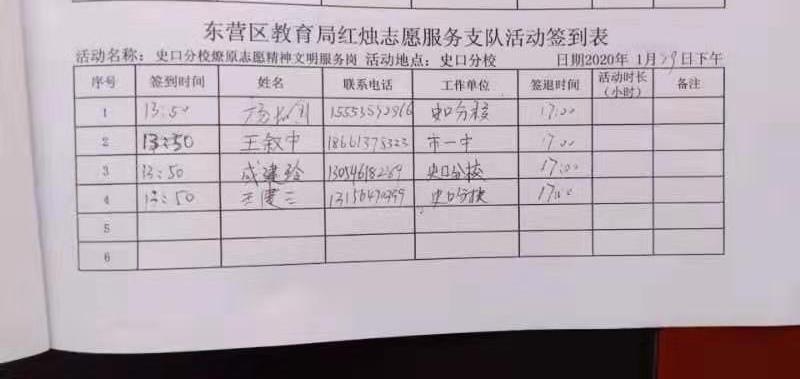 东营区教育局红烛志愿服务支队活动签到表
活动名称：史口分校燎原志愿精神文明服务岗 活动地点：史口分校 日期2020年 1月29日下午
序号 签到时间 姓名 联系电话 工作单位 签退时间 活动时长（小时） 备注
1 13:50 史口分校 17:00
2 13:50 王叙中 18661378323 市一中 17:00
3 13:50 成建玲 13054618269 史口分校 17:00
4 13:50 史口分校 17:00
5
6